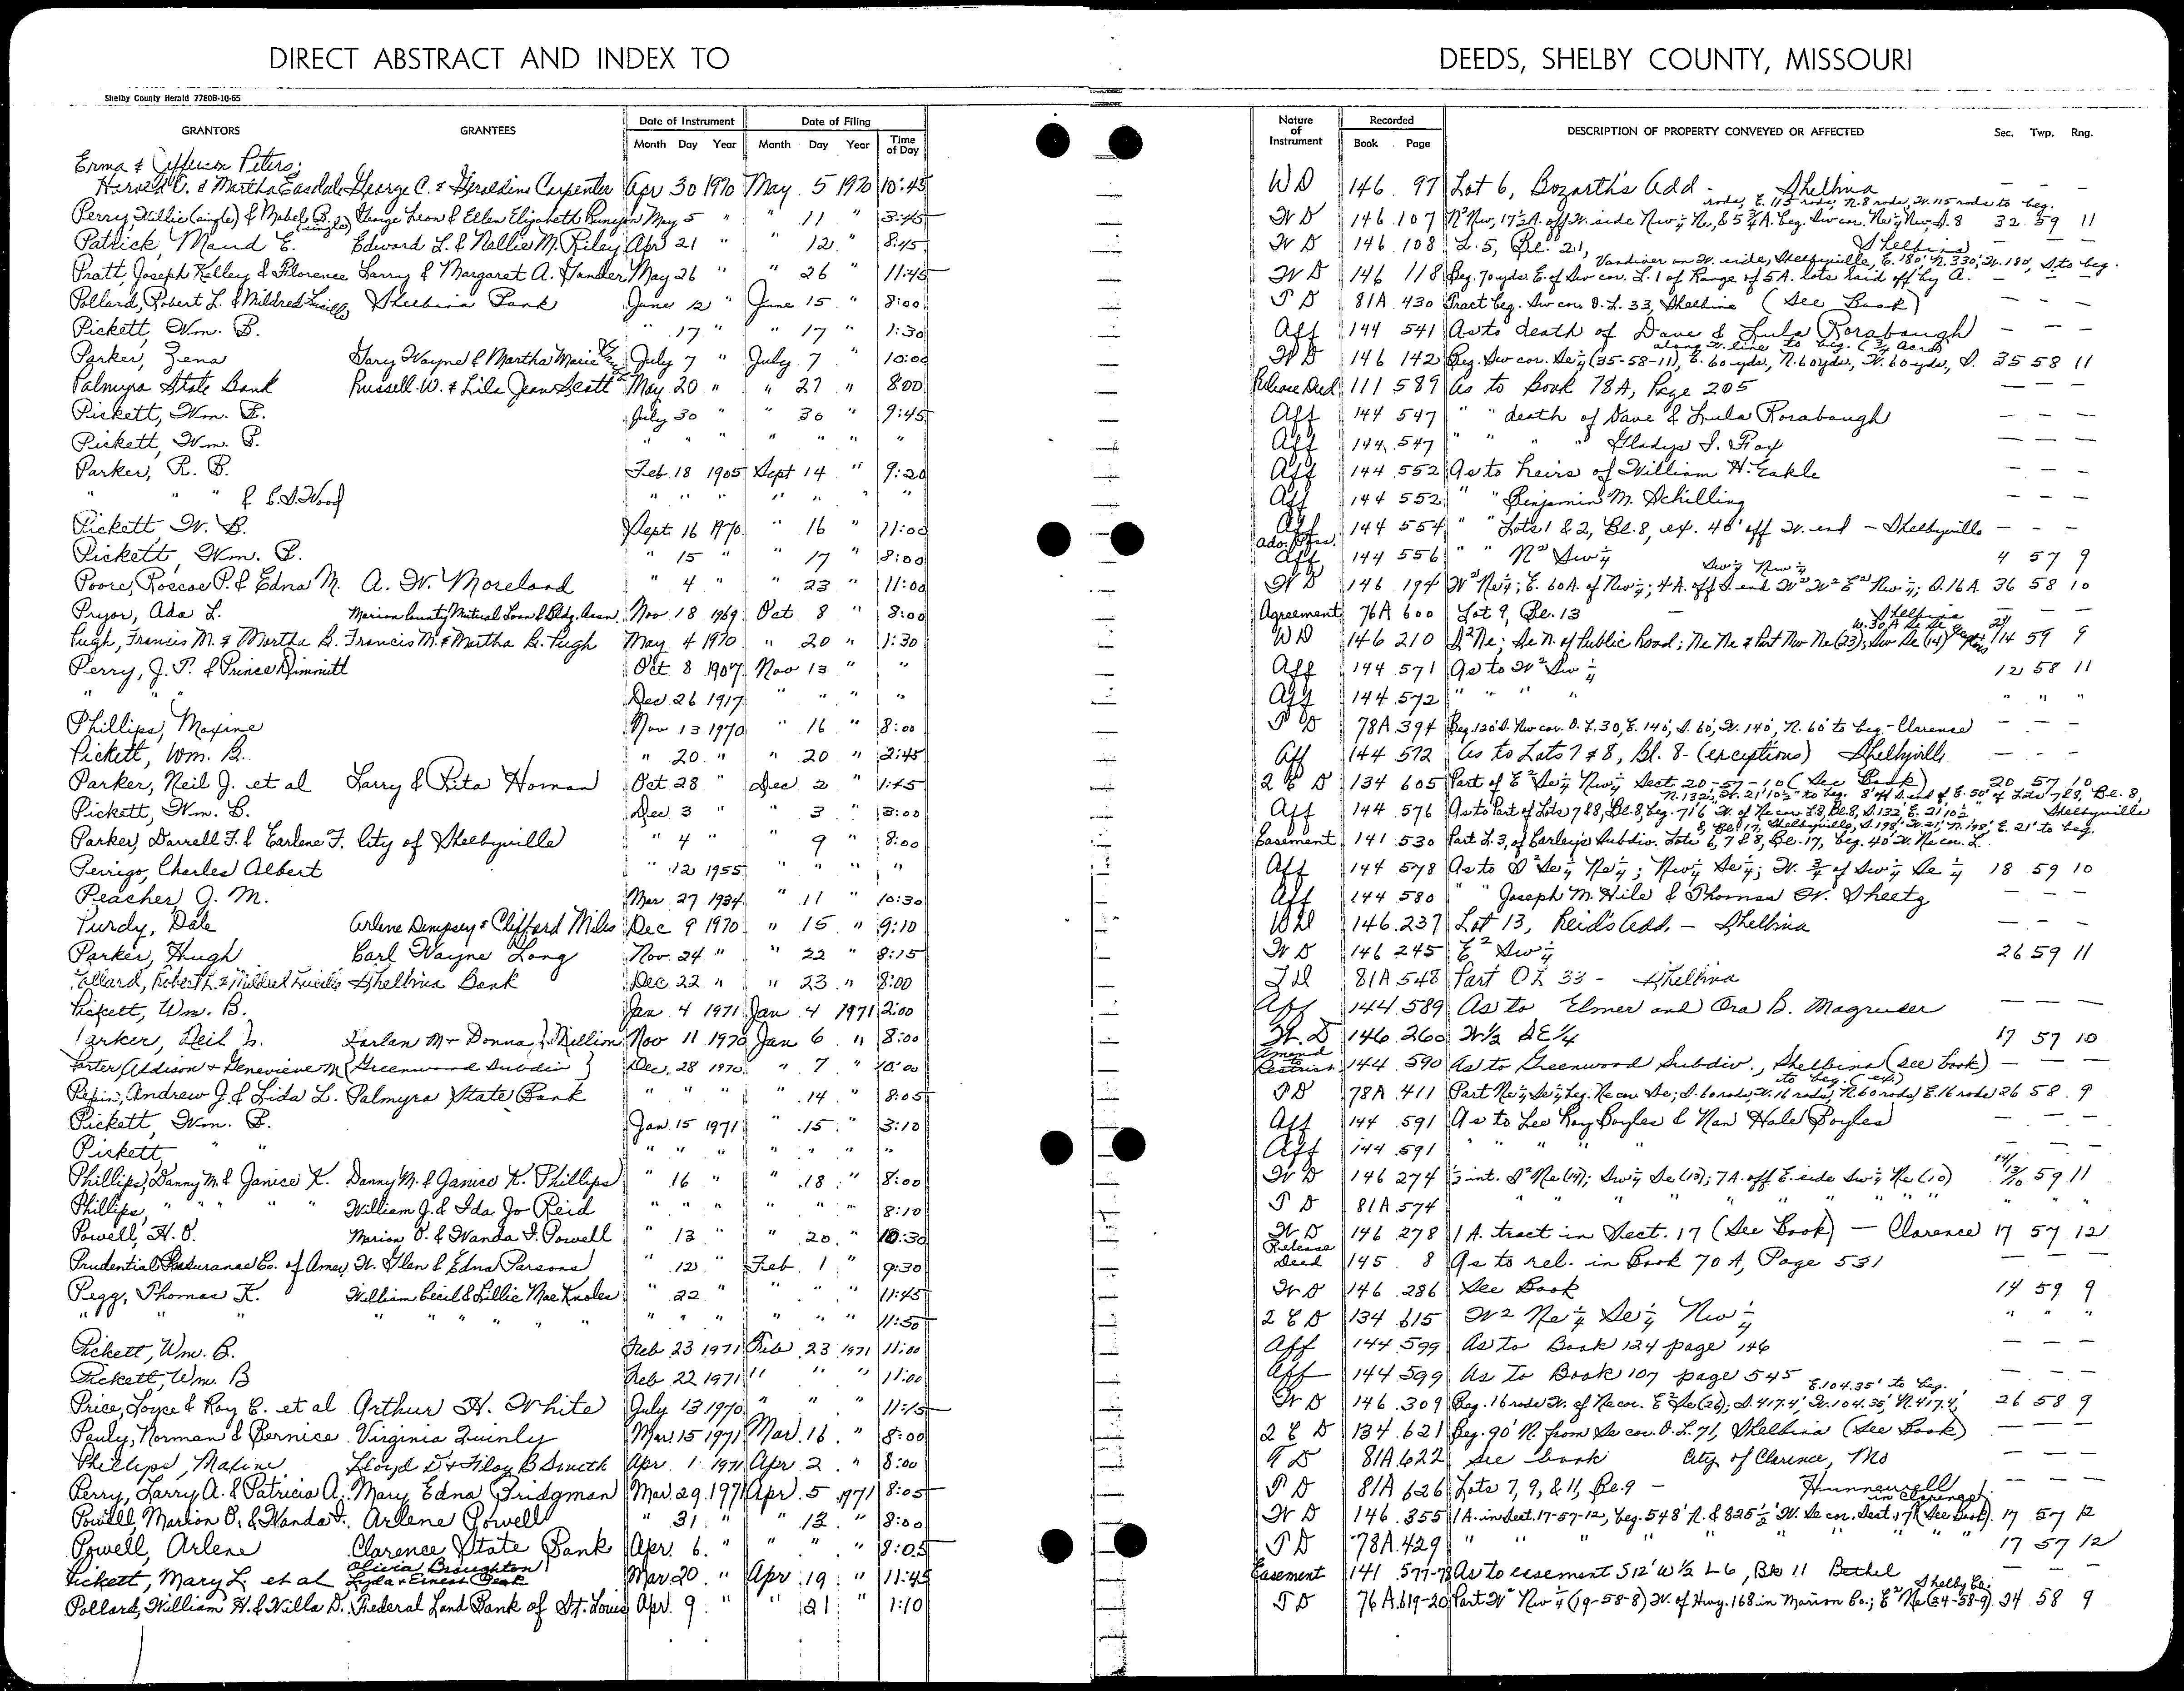 DIRECT ABSTRACT AND INDEX TO DEEDS, SHELBY COUNTY, MISSOURI
Shelby County Herald 7780B-10-65
GRANTORS GRANTEES Date of Instrument Month Day Year Date of Filing Month Day Year Time of Day Nature of Instrument Recorded Book Page DESCRIPTION OF PROPERTY CONVEYED OR AFFECTED Sec. Twp. Rng.
Erma & Jefferson Peters;
Harold O. & Martha Easdale George C. & Geraldine Carpenter Apr 30 1970 May 5 1970 10:45 WD 146 97 Lot 6, Bozarth's Add - Shelbina — — —
rods, E. 115 rods, N. 8 rods, W. 115 rods to beg.
Perry, Willie (single) & Mabel B. (single) George Leon & Ellen Elizabeth Runyon May 5 " " 11 " 3:45 WD 146 107 N² Nw, 17½ A. off W. side Nw¼ Ne, & 5¾ A. beg. Sw cor. Ne¼ Nw, S. 8 32 59 11
Patrick, Maud E. Edward L. & Nellie M. Riley Apr 21 " " 12 " 8:45 WD 146 108 L. 5, Bl. 21, Shelbina
Vandiver on W. side, Shelbyville, E. 180', N. 330', W. 180', S. to beg.
Pratt, Joseph Kelley & Florence Larry & Margaret A. Gander May 26 " " 26 " 11:45 WD 146 118 Beg. 70 yds. E. of Sw cor. L. 1 of Range of 5 A. lots laid off by A. — — —
Pollard, Robert L. & Mildred Lucille Shelbina Bank June 12 " June 15 " 8:00 TD 81A 430 Tract beg. Sw cor. O.L. 33, Shelbina (See Book) — — —
Pickett, Wm. B. " 17 " " 17 " 1:30 Aff 144 541 As to death of Dave & Lula Rorabaugh — — —
along W. line to beg. (¾ Acre)
Parker, Zena Gary Wayne & Martha Marie July 7 " July 7 " 10:00 WD 146 142 Beg. Sw cor. Se¼ (35-58-11), E. 60 yds, N. 60 yds, W. 60 yds, S. 35 58 11
Palmyra State Bank Russell W. & Lila Jean Scott May 20 " " 27 " 8:00 Release Deed 111 589 As to Book 78A, Page 205 — — —
Pickett, Wm. B. July 30 " " 30 " 9:45 Aff 144 547 " " death of Dave & Lula Rorabaugh — — —
Pickett, Wm. B. " " " " " " " Aff 144 547 " " " " Gladys I. Fox — — —
Parker, R. B. Feb 18 1905 Sept 14 " 9:20 Aff 144 552 As to heirs of William H. Eakle — — —
" " " & C.S. Wood " " " " " " " Aff 144 552 " " Benjamin M. Schilling — — —
Pickett, W. B. Sept 16 1970 " 16 " 11:00 Aff 144 554 " " Lots 1 & 2, Bl. 8, ex. 40' off W. end - Shelbyville — — —
Pickett, Wm. B. " 15 " " 17 " 8:00 Adv. Poss. Aff 144 556 " " N² Sw¼ 4 57 9
Sw¼ Nw¼
Poore, Roscoe P. & Edna M. A. W. Moreland " 4 " " 23 " 11:00 WD 146 194 W² Ne¼; E. 60A. of Nw¼; 4A. off S. end W² W² E² Nw¼; S. 16A. 36 58 10
Pryor, Ada L. Marion County Mutual Loan & Bldg. Assn. Nov 18 1969 Oct 8 " 8:00 Agreement 76A 600 Lot 9, Bl. 13 - Shelbina —
Pugh, Francis M. & Martha B. Francis M. & Martha B. Pugh May 4 1970 " 20 " 1:30 WD 146 210 S² Ne; Se N. of Public Road; Ne Ne & Part Nw Ne (23); Sw Se (14) 14 59 9
Perry, J. T. & Prince Dimmitt Oct 8 1907 Nov 13 " " Aff 144 571 As to W² Sw¼ 12 58 11
" " Dec 26 1917 " " " " Aff 144 572 " " " " " " "
Phillips, Maxine Nov 13 1970 " 16 " 8:00 TD 78A 394 Beg. 120' S. Nw cor. O.L. 30, E. 140', S. 60', W. 140', N. 60' to beg. - Clarence — — —
Pickett, Wm. B. " 20 " " 20 " 2:45 Aff 144 572 As to Lots 7 & 8, Bl. 8 - (exceptions) Shelbyville — — —
Parker, Neil J. et al Larry & Rita Homan Oct 28 " Dec 2 " 1:45 2 C D 134 605 Part of E² Se¼ Nw¼ Sect 20-57-10 (See Book) 20 57 10
N. 132', W. 21' 10½" to beg. 8' off S. end of E. 50' of Lots 7 & 8, Bl. 8,
Pickett, Wm. B. Dec 3 " " 3 " 3:00 Aff 144 576 As to Part of Lots 7 & 8, Bl. 8, beg. 71'6" W. of Ne cor. L. 8, Bl. 8, S. 132', E. 21' 10½" Shelbyville
8, Bl. 17, Shelbyville, S. 198', W. 21', N. 198', E. 21' to beg.
Parker, Darrell F. & Earlene F. City of Shelbyville " 4 " " 9 " 8:00 Easement 141 530 Part L. 3, of Barley's Subdiv. Lots 6, 7 & 8, Bl. 17, beg. 40' W. Ne cor. L.
Perrigo, Charles Albert " 12 1955 " " " " Aff 144 578 As to S² Se¼ Ne¼; Nw¼ Se¼; W. ¾ of Sw¼ Se¼ 18 59 10
Peacher, J. M. Mar 27 1934 " 11 " 10:30 Aff 144 580 " " Joseph M. Hile & Thomas W. Sheetz — — —
Purdy, Dale Arlene Dempsey & Clifford Miles Dec 9 1970 " 15 " 9:10 WD 146 237 Lot 13, Reid's Add. - Shelbina — — —
Parker, Hugh Carl Wayne Long Nov 24 " " 22 " 8:15 WD 146 245 E² Sw¼ 26 59 11
Pollard, Robert L. & Mildred Lucille Shelbina Bank Dec 22 " " 23 " 8:00 TD 81A 548 Part OL 33 - Shelbina — — —
Pickett, Wm. B. Jan 4 1971 Jan 4 1971 2:00 Aff 144 589 As to Elmer and Ora B. Magruder — — —
Parker, Neil J. Harlan M + Donna J Million Nov 11 1970 Jan 6 " 8:00 W.D 146 260 W½ SE¼ 17 57 10
Porter, Addison + Genevieve M { Greenwood Subdiv } Dec. 28 1970 " 7 " 10:00 Amend to Restrict 144 590 As to Greenwood Subdiv., Shelbina (see book) — — —
to beg. (ex.)
Pepin, Andrew J. & Lida L. Palmyra State Bank " " " " 14 " 8:05 TD 78A 411 Part Ne¼ Se¼, beg. Ne cor. Se; S. 60 rods, W. 16 rods, N. 60 rods, E. 16 rods 26 58 9
Pickett, Wm. B. Jan 15 1971 " 15 " 3:10 Aff 144 591 As to Lee Roy Boyles & Nan Hale Boyles — — —
Pickett, " " " " " " " " " Aff 144 591 " " " " " — — —
Phillips, Danny M. & Janice K. Danny M. & Janice K. Phillips " 16 " " 18 " 8:00 WD 146 274 ½ int. S² Ne (14); Sw¼ Se (13); 7A. off E. side Sw¼ Ne (10) 14/13/10 59 11
Phillips, " " " " William J. & Ida Jo Reid " " " " " " 8:10 TD 81A 574 " " " " " " " " "
Powell, H. O. Marion O. & Wanda I. Powell " 13 " " 20 " 10:30 WD 146 278 1 A. tract in Sect. 17 (See Book) — Clarence 17 57 12
Prudential Insurance Co. of Amer. W. Glen & Edna Parsons " 12 " Feb. 1 " 9:30 Release Deed 145 8 As to rel. in Book 70 A, Page 531 — — —
Pegg, Thomas K. William Cecil & Lillie Mae Knoles " 22 " " " " 11:45 WD 146 286 See Book 14 59 9
" " " " " " " " " " " " " " 11:50 2 C D 134 615 W² Ne¼ Se¼ Nw¼ " " "
Pickett, Wm. B. Feb 23 1971 Feb 23 1971 11:00 Aff 144 599 As to Book 124 page 146 — — —
Pickett, Wm. B Feb 22 1971 " " " 11:00 Aff 144 599 As To Book 107 page 545 — — —
E. 104.35' to beg.
Price, Joyce & Roy C. et al Arthur H. White July 13 1970 " " " 11:15 WD 146 309 Beg. 16 rods W. of Ne cor. E² Se (26); S. 417.4', W. 104.35', N. 417.4', 26 58 9
Pauly, Norman & Bernice Virginia Quinly Mar 15 1971 Mar. 16 " 8:00 2 C D 134 621 Beg. 90' N. from Se cor. O.L. 71, Shelbina (See Book) — — —
Phillips, Maxine Lloyd D + Filoy B Smith Apr 1 1971 Apr 2 " 8:00 TD 81A 622 See book City of Clarence, Mo — — —
Perry, Larry A. & Patricia A. Mary Edna Bridgman Mar 29 1971 Apr. 5 1971 8:05 TD 81A 626 Lots 7, 9, & 11, Bl. 9 - Hunnewell — — —
in Clarence
Powell, Marion O. & Wanda I. Arlene Powell " 31 " " 12 " 8:00 WD 146 355 1A. in Sect. 17-57-12, beg. 548' N. & 825½' W. Se cor. Sect. 17 (See Book) 17 57 12
Powell, Arlene Clarence State Bank Apr. 6 " " " " 8:05 TD 78A 429 " " " " " " " 17 57 12
Pickett, Mary L. et al Olivia Broughton Lyda + Ernest Peak Mar. 20 " Apr 19 " 11:45 Easement 141 577-78 As to easement S 12' W½ L 6, Bk 11 Bethel — — —
Shelby Co.
Pollard, William H. & Willa D. Federal Land Bank of St. Louis Apr. 9 " " 21 " 1:10 TD 76A 619-20 Part W² Nw¼ (19-58-8) W. of Hwy. 168 in Marion Co.; E² Ne (24-58-9) 24 58 9